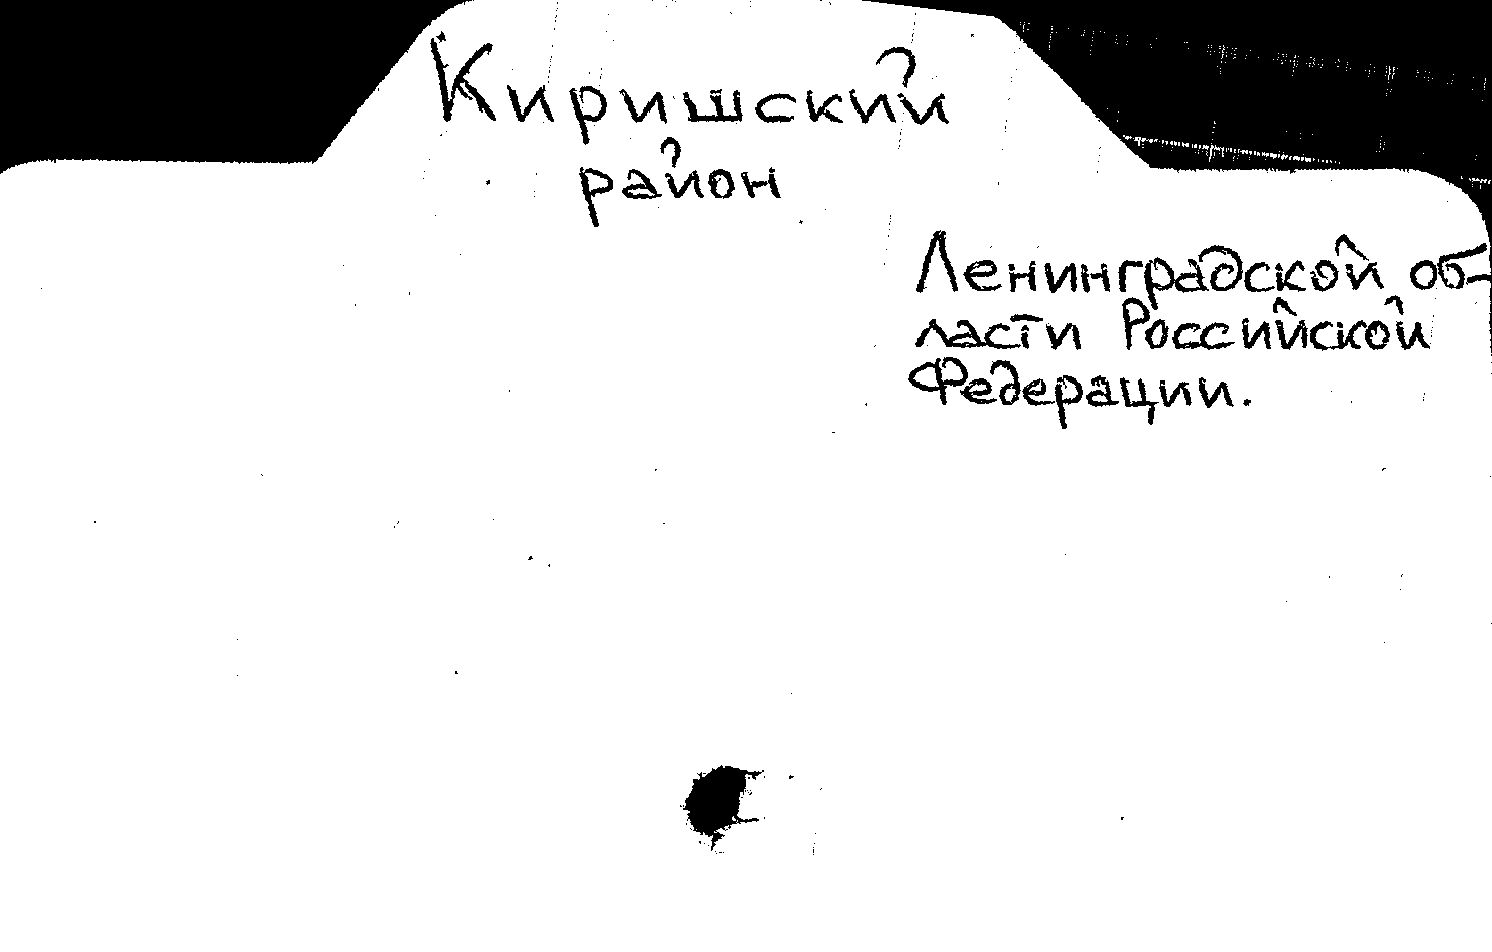 Киришский
район
Ленинградской об-
ласти Российской
Федерации.